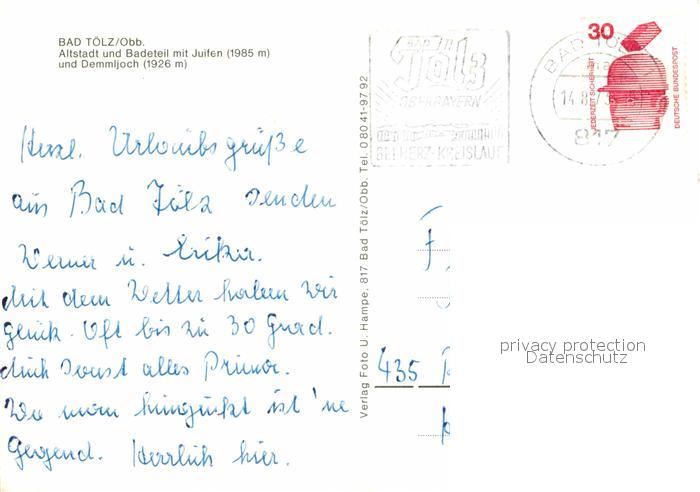 BAD TÖLZ/Obb.
Altstadt und Badeteil mit Juifen (1985 m)
und Demmljoch (1926 m)
Herzl. Urlaubsgrüße
aus Bad Tölz senden
Werner u. Erika.
Mit dem Wetter haben wir
glück. Oft bis zu 30 Grad.
Auch sonst alles Prima.
Wo man hinguckt ist 'ne
Gegend. Herrlich hier.
Verlag Foto U. Hampe, 817 Bad Tölz/Obb. Tel. 0 80 41-97 92
BAD
Tölz
OBERBAYERN
BEI HERZ-KREISLAUF
BAD TÖLZ
14.8.7
817
30
JEDERZEIT SICHERHEIT
DEUTSCHE BUNDESPOST
435
privacy protection
Datenschutz